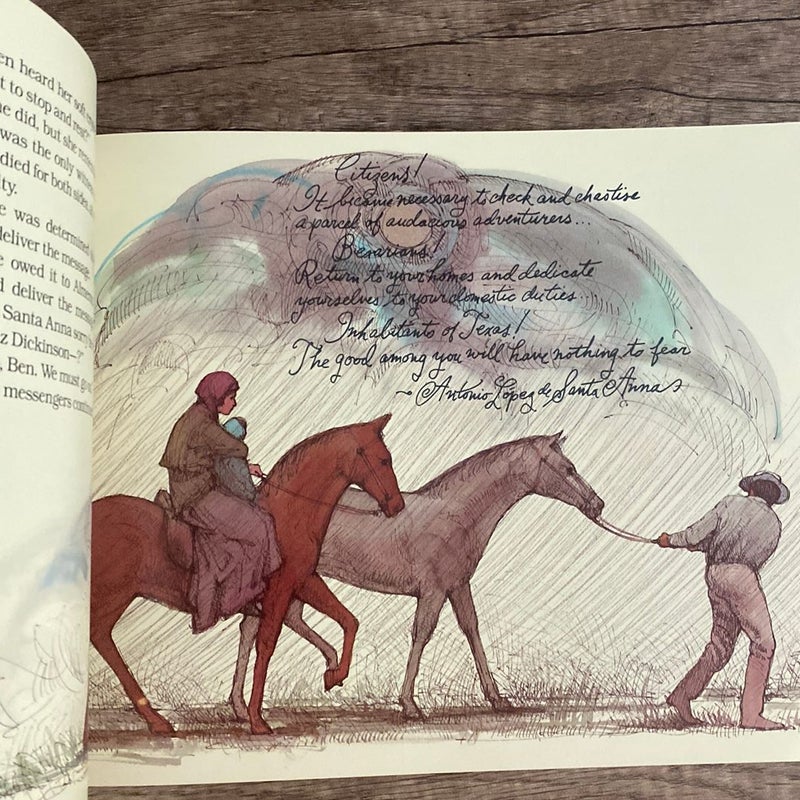 en heard her soft
t to stop and rest?
ne did, but she
was the only
died for both sides,
lty.
e was determined
deliver the message
e owed it to
d deliver the
Santa Anna
z Dickinson—?"
, Ben. We must go
messengers
Citizens!
It became necessary to check and chastise
a parcel of audacious adventurers...
Bexarians!
Return to your homes and dedicate
yourselves to your domestic duties...
Inhabitants of Texas!
The good among you will have nothing to fear
~ Antonio López de Santa Anna